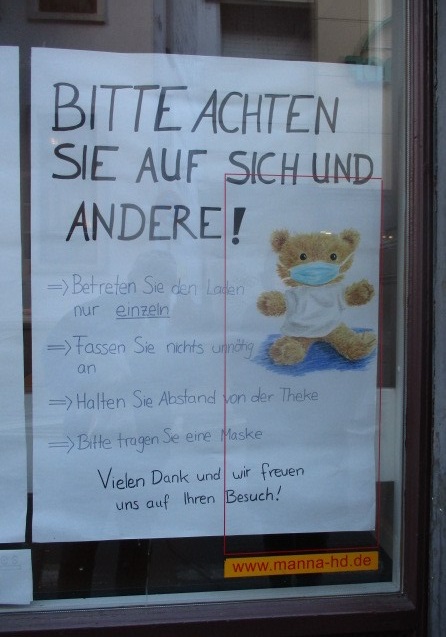 BITTE ACHTEN
SIE AUF SICH UND
ANDERE!
=> Betreten Sie den Laden
nur einzeln
=> Fassen Sie nichts unnötig
an
=> Halten Sie Abstand von der Theke
=> Bitte tragen Sie eine Maske
Vielen Dank und wir freuen
uns auf Ihren Besuch!
www.manna-hd.de